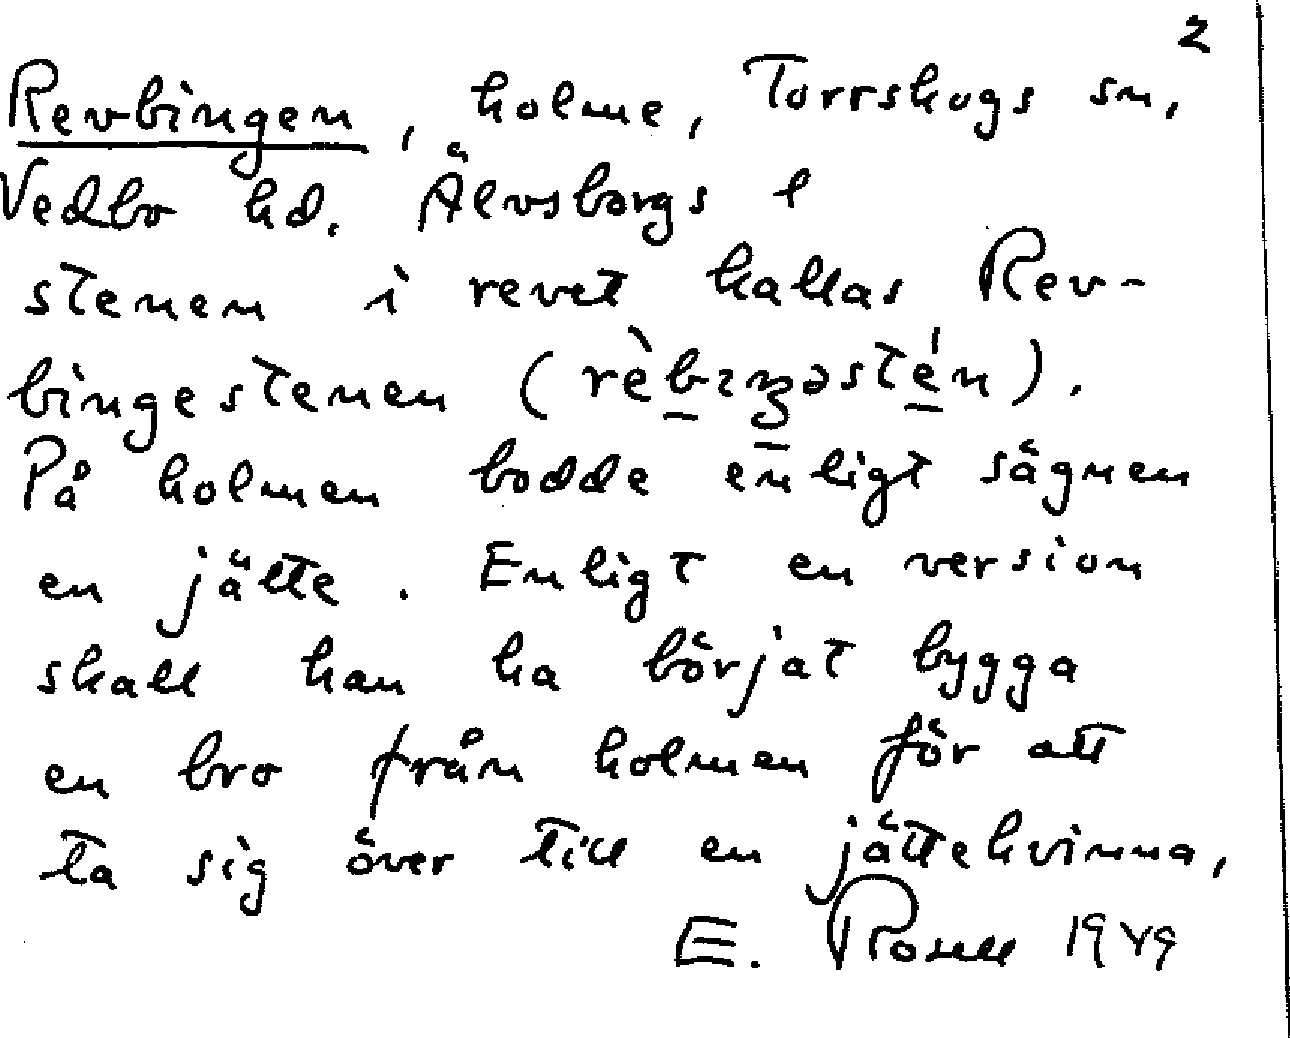 2
Revbingen, holme, Torrskogs sn,
Vedbo hd. Älvsborgs l
stenen i revet kallas Rev-
bingestenen (rèbıŋəstén).
På holmen bodde enligt sägnen
en jätte. Enligt en version
skall han ha börjat bygga
en bro från holmen för att
ta sig över till en jättekvinna,
E. Rosell 1949